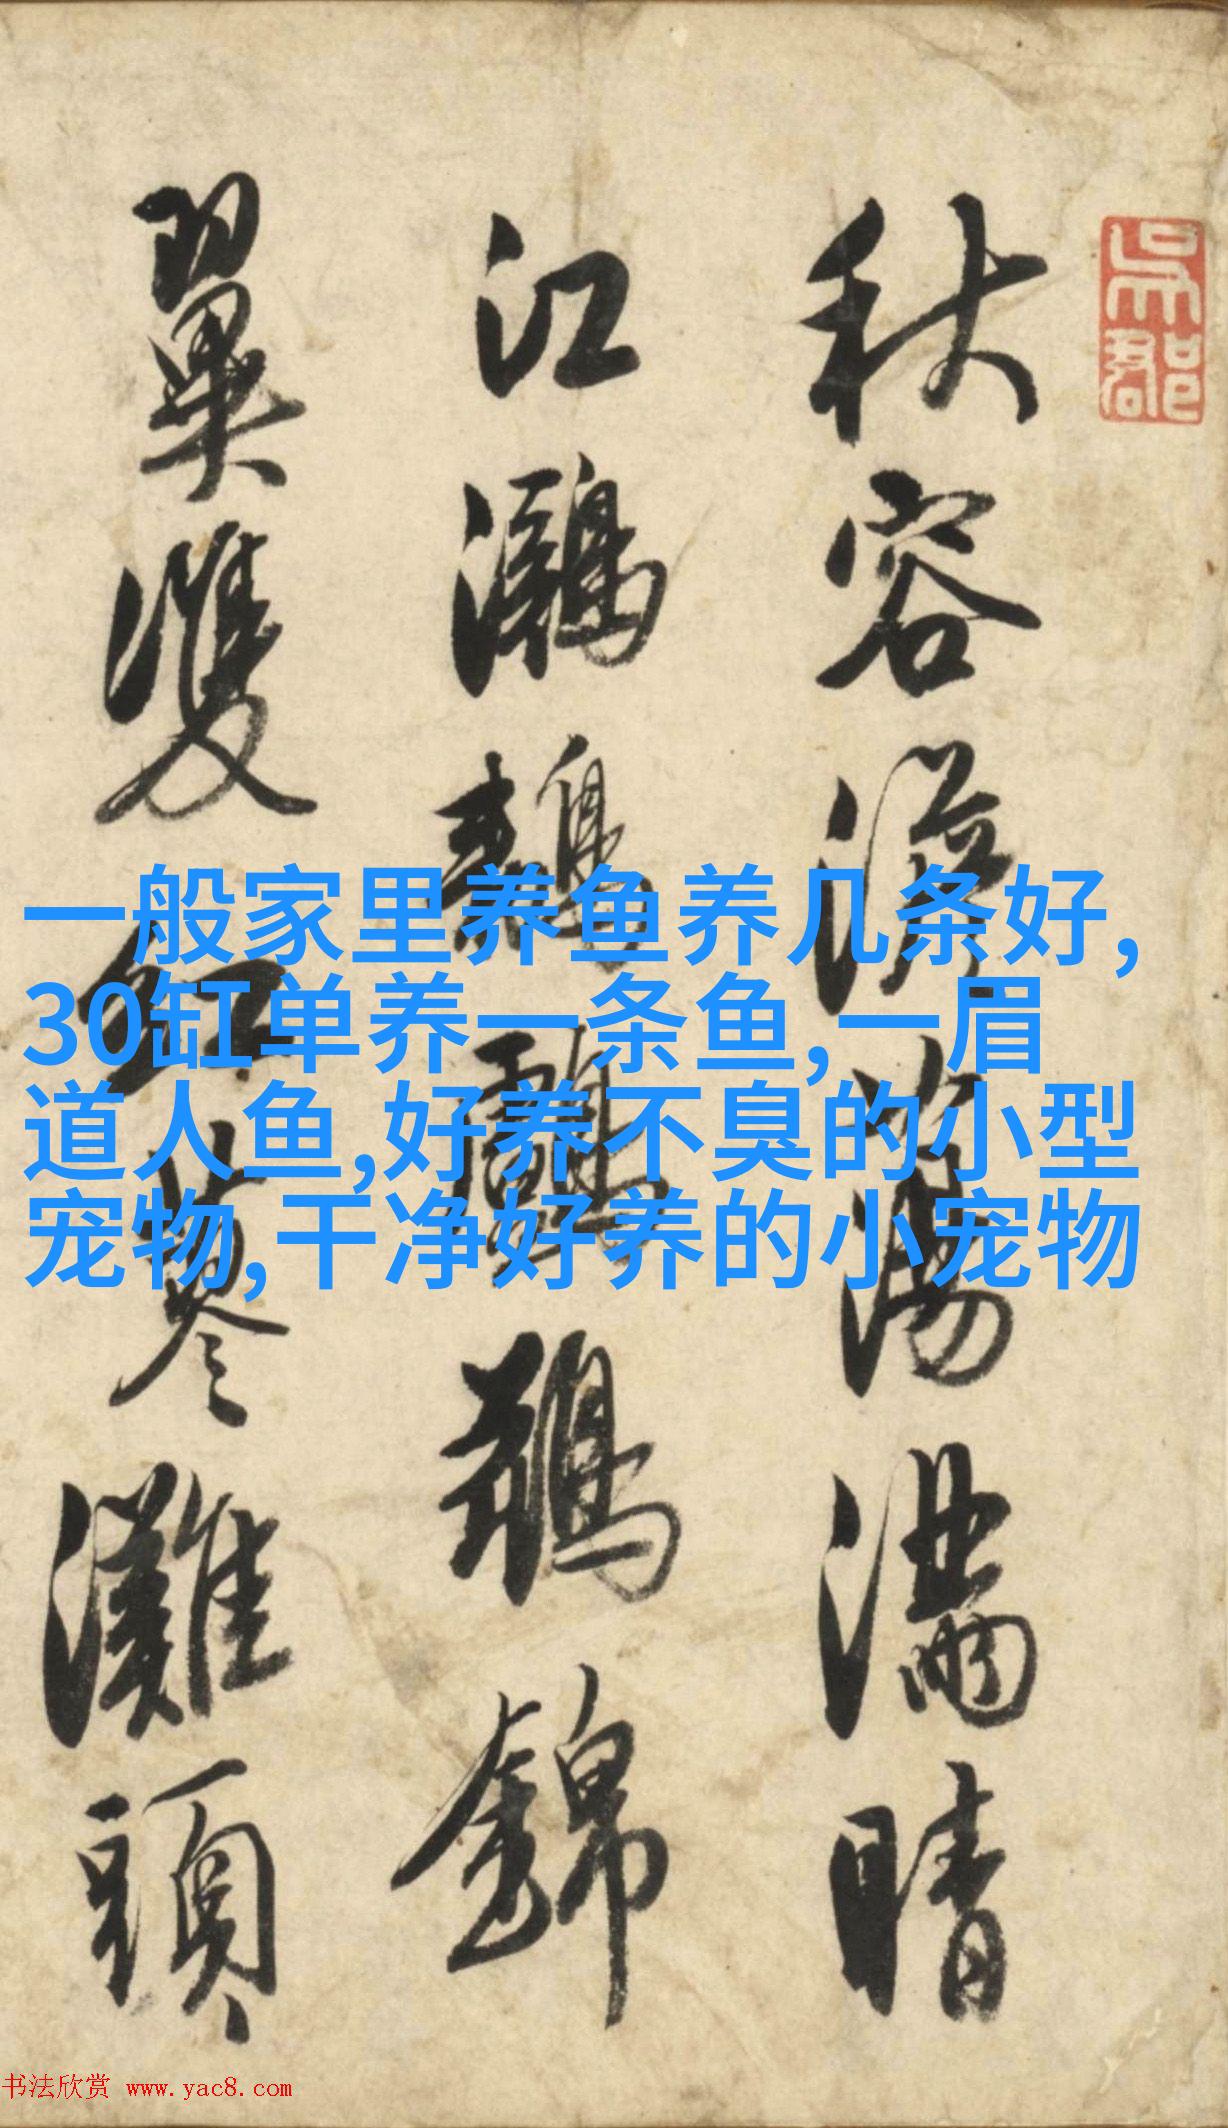 秋容淡蕩滿晴
江鸂鶒䴇鶄錦
翼雙紅蓼灘頭
吳郡
一般家里养鱼养几条好,
30缸单养一条鱼,一眉
道人鱼,好养不臭的小型
宠物,干净好养的小宠物
书法欣赏 www.yac8.com